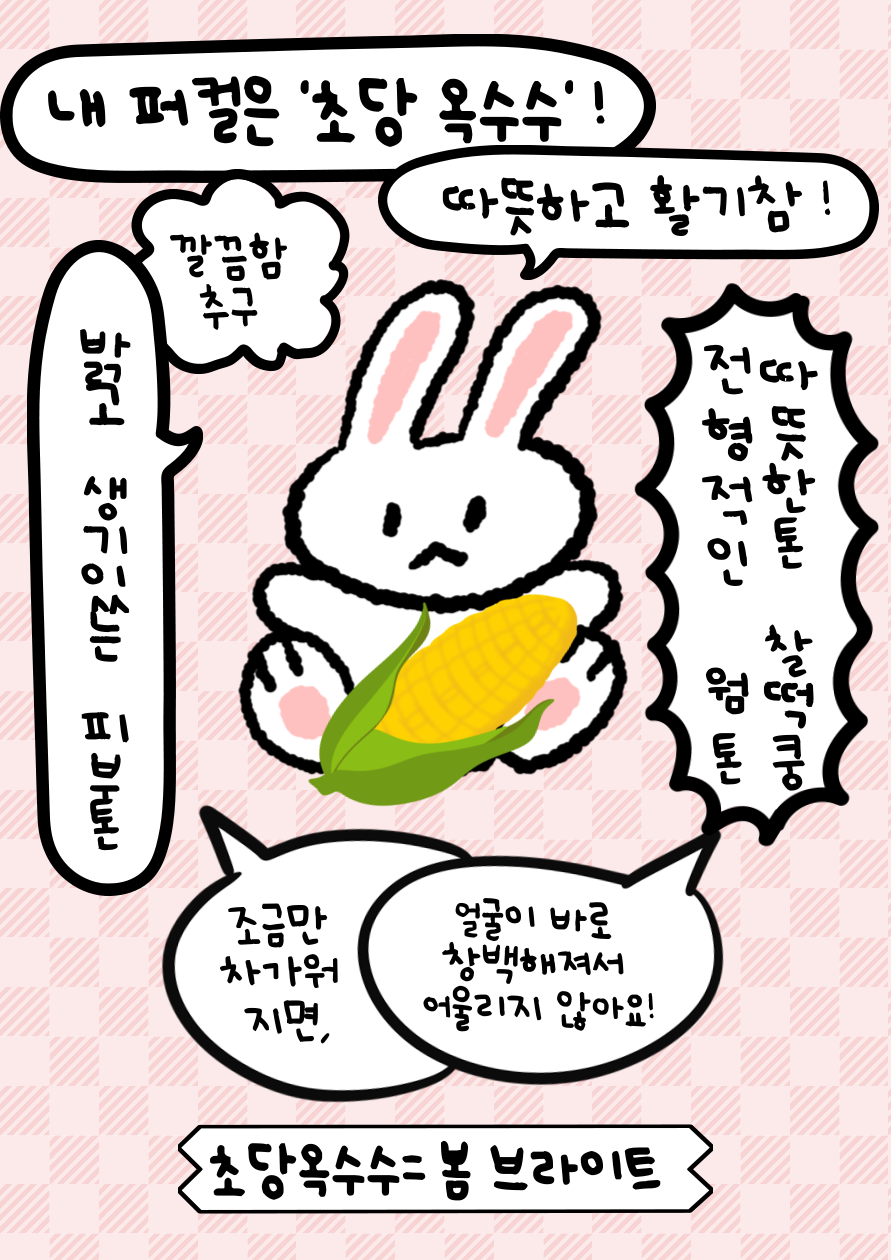 내 퍼컬은 '초당 옥수수' !
따뜻하고 활기참 !
깔끔함
추구
밝고 생기있는 피부톤
따뜻한톤 찰떡쿵
전형적인 웜톤
조금만
차가워
지면,
얼굴이 바로
창백해져서
어울리지 않아요!
초당옥수수= 봄 브라이트